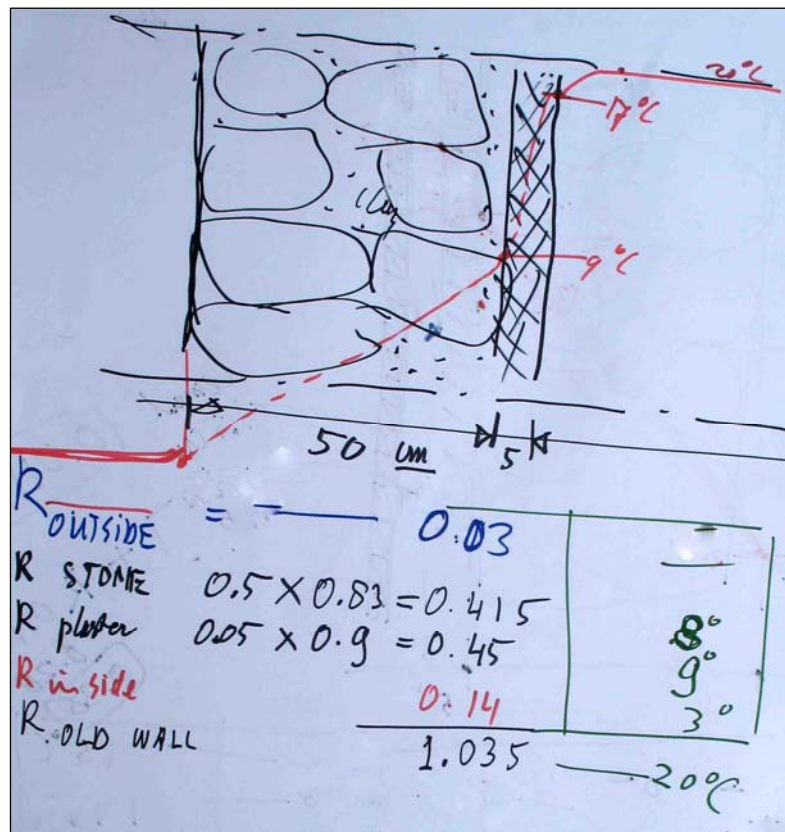 20°C
17°C
9°C
50 cm
5
R OUTSIDE = — 0.03 —
R STONE 0.5 X 0.83 = 0.415 8°
R plaster 0.05 X 0.9 = 0.45 9°
R inside 0.14 3°
R. OLD WALL 1.035 — 20°C